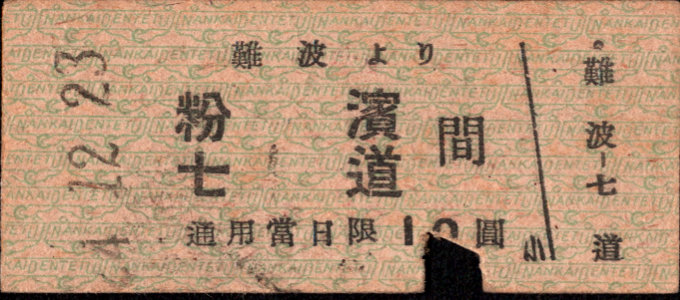 24.12.23
難波より
粉濱
七道
間
通用當日限10圓
小
難波-七道
NANKAIDENTETU